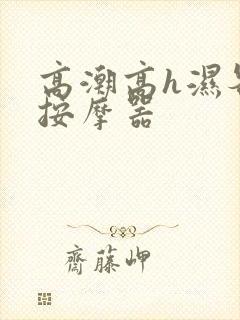 高潮高h湿
按摩器
齋藤岬